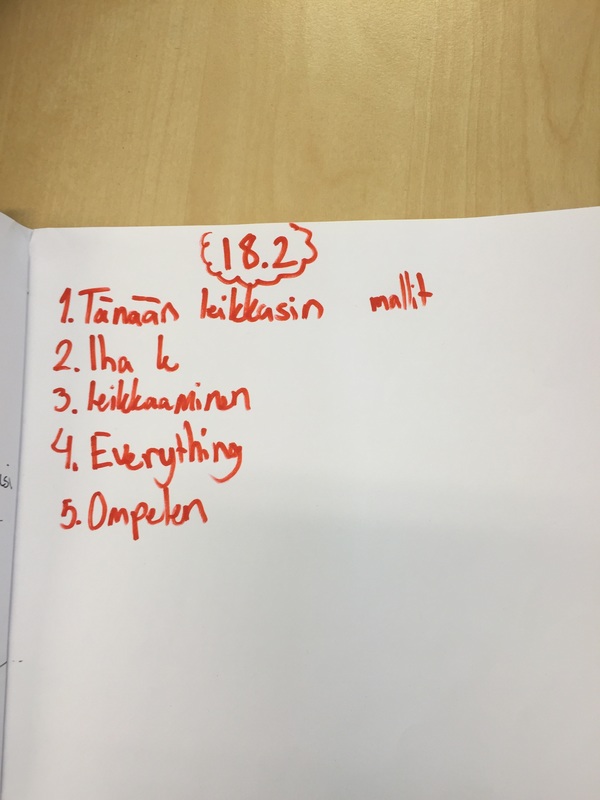 18.2
1. Tänään leikkasin mallit
2. Iha k
3. leikkaaminen
4. Everything
5. Ompelen